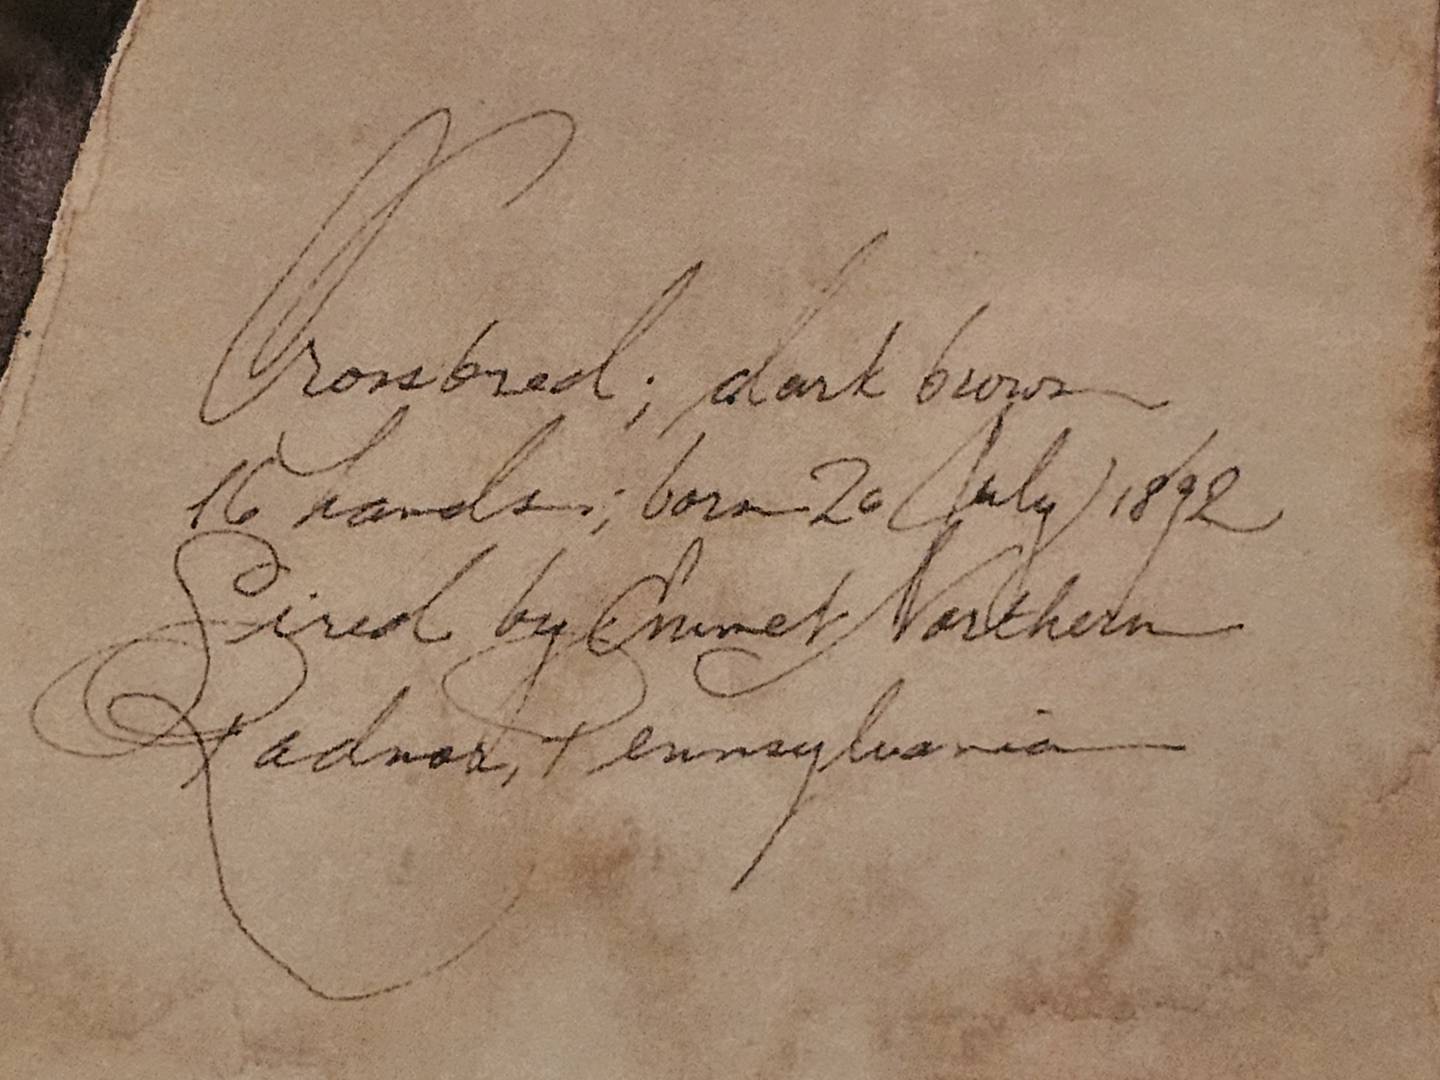 Crossbred; dark brown
16 hands; born 20 July 1892
Sired by Emmet Northern
Radnor, Pennsylvania